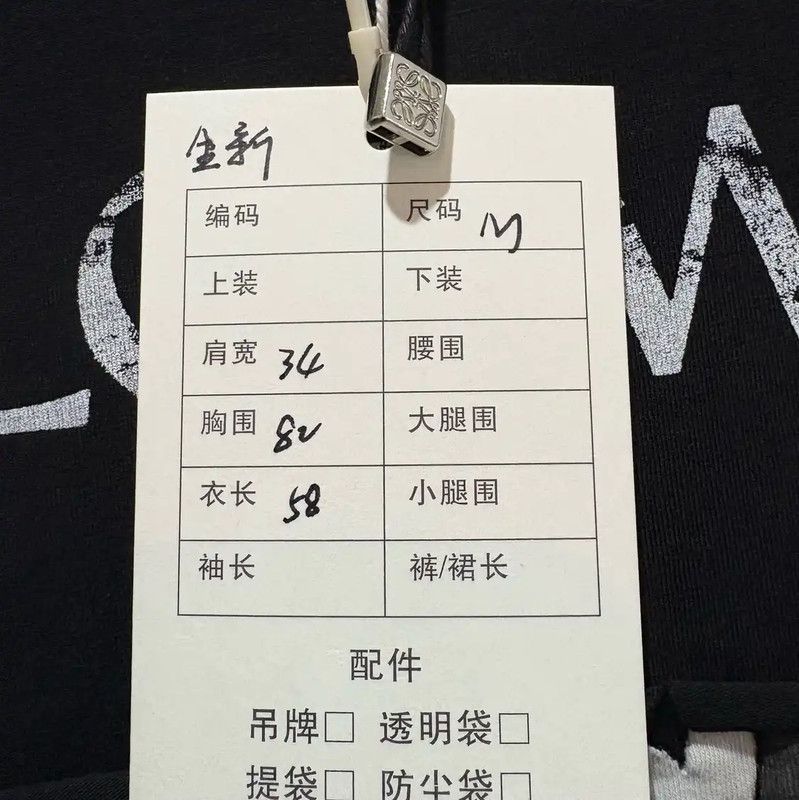 全新
编码 尺码 M
上装 下装
肩宽 34 腰围
胸围 82 大腿围
衣长 58 小腿围
袖长 裤/裙长
配件
吊牌□ 透明袋□
提袋□ 防尘袋□